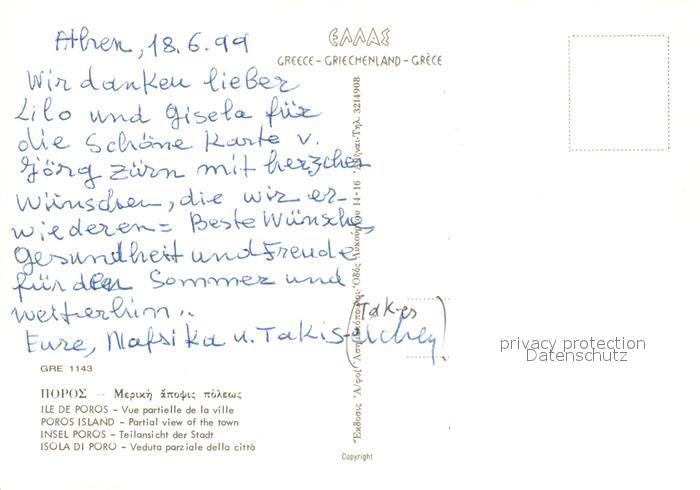 Athen, 18.6.99
Wir danken lieber
Lilo und Gisela für
die schöne Karte v.
Jörg Zürn mit herzchen
Wünschen, die wir er-
wiederen = Beste Wünsche,
Gesundheit und Freude
für den Sommer und
weiterhin..
Eure, Nafsika u. Takis
(Takes
GRE 1143
ΠΟΡΟΣ — Μερική ἄποψις πόλεως
ILE DE POROS – Vue partielle de la ville
POROS ISLAND – Partial view of the town
INSEL POROS – Teilansicht der Stadt
ISOLA DI PORO – Veduta parziale della città
ΕΛΛΑΣ
GREECE - GRIECHENLAND - GRÈCE
14-16 Ἀθῆναι Τηλ. 3214908
Copyright
privacy protection
Datenschutz